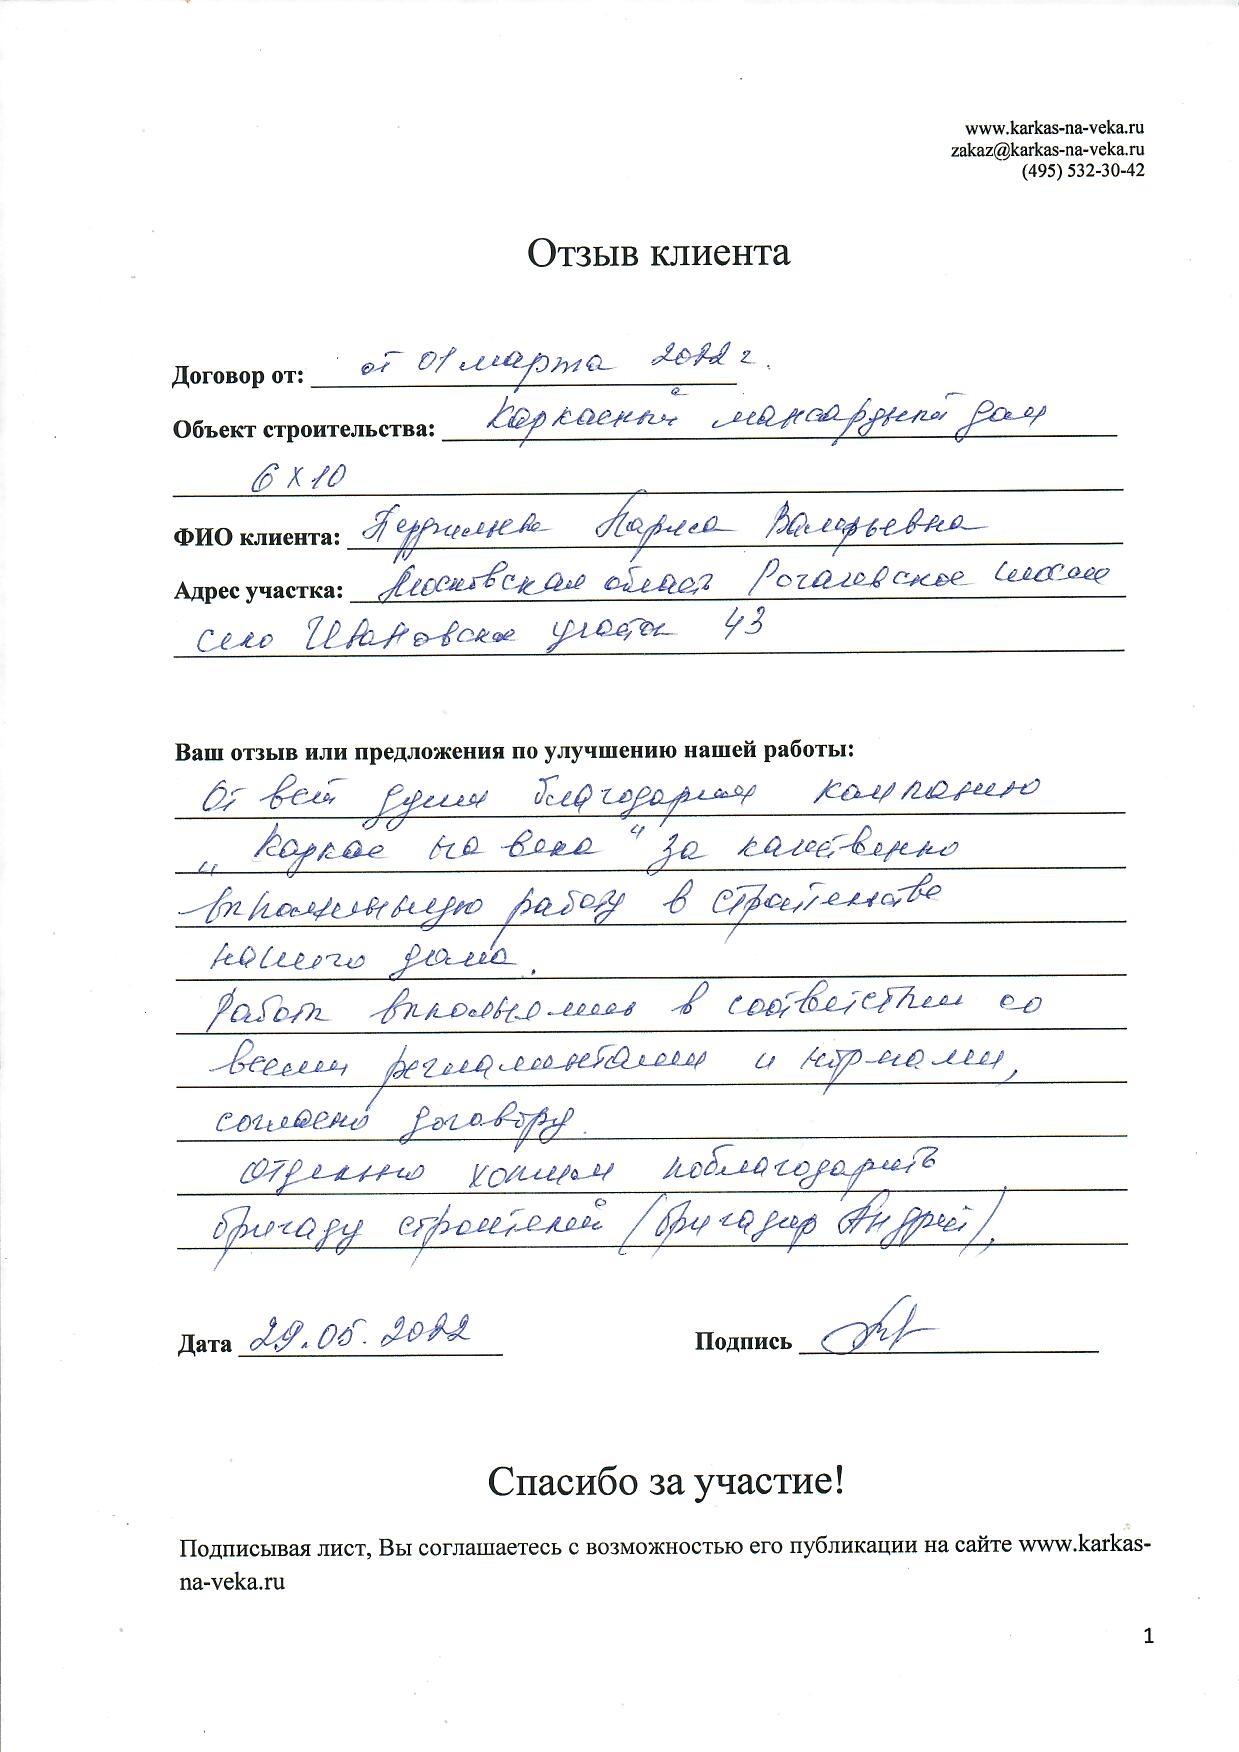 www.karkas-na-veka.ru
zakaz@karkas-na-veka.ru
(495) 532-30-42
Отзыв клиента
Договор от: от 01 марта 2022 г.
Объект строительства: Каркасный мансардный дом
6 х 10
ФИО клиента: Лариса Валерьевна
Адрес участка: Московская область Рогачевское шоссе
село Ивановское участок 43
Ваш отзыв или предложения по улучшению нашей работы:
От всей души благодарим компанию
„Каркас на века" за качественно
выполненную работу в строительстве
нашего дома.
Работы выполнены в соответствии со
всеми регламентами и нормами,
согласно договору.
Отдельно хотим поблагодарить
бригаду строителей (бригадир Андрей).
Дата 29.05.2022 Подпись
Спасибо за участие!
Подписывая лист, Вы соглашаетесь с возможностью его публикации на сайте www.karkas-
na-veka.ru
1